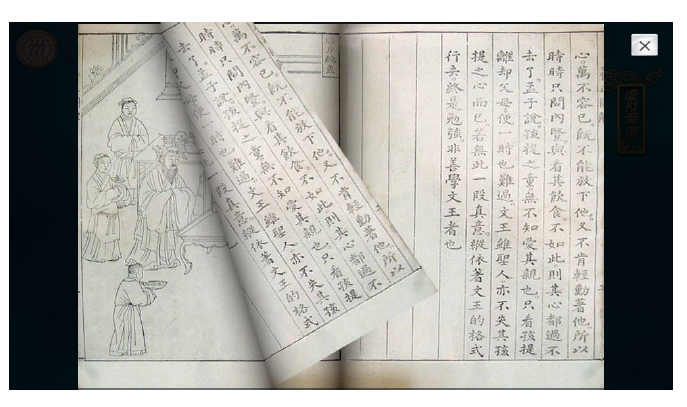 心。萬不容已。既不能放下他。又不肯輕動著他。所以
時時只問內豎。與看其飲食。不如此。則其心都過不
去了。孟子說孩提之童。無不知愛其親也。只看孩提
離却父母。便一時也難過。文王雖聖人。亦不失其孩
提之心而已。若無此一段真意。縱依著文王的格式
行去。終是勉強。非善學文王者也
心。萬不容已。既不能放下他。又不肯輕動著他。所以
時時只問內豎。與看其飲食。不如此。則其心都過不
去了。孟子說孩提之童。無不知愛其親也。只看孩提
便一時也難過。文王雖聖人。亦不失其孩
此一段真意。縱依著文王的格式